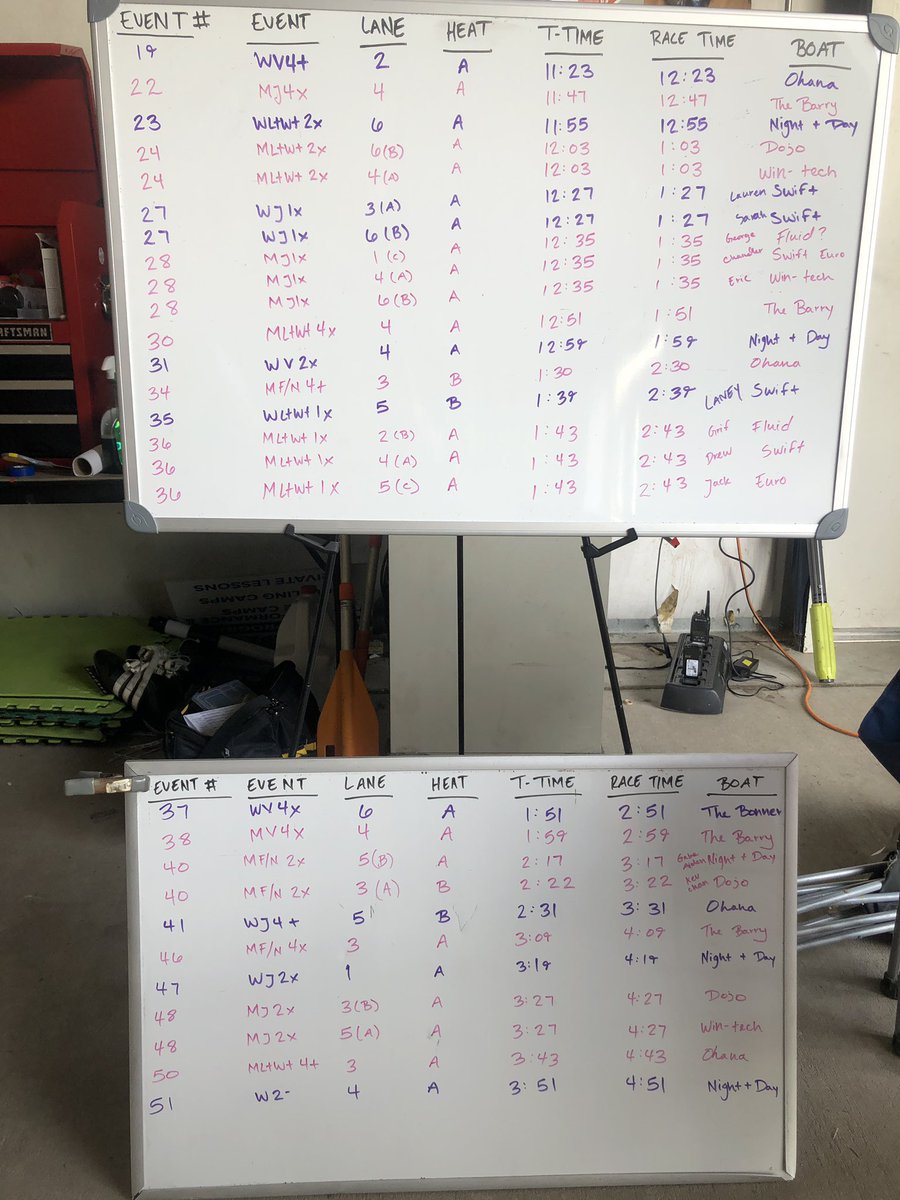 EVENT # EVENT LANE HEAT T-TIME RACE TIME BOAT
19 WV4+ 2 A 11:23 12:23 Ohana
22 MJ4x 4 A 11:47 12:47 The Barry
23 WLtWt 2x 6 A 11:55 12:55 Night + Day
24 MLtWt 2x 6(B) A 12:03 1:03 Dojo
24 MLtWt 2x 4(A) A 12:03 1:03 Win-tech
27 WJ1x 3(A) A 12:27 1:27 Lauren Swift
27 WJ1x 6(B) A 12:27 1:27 Sarah Swift
28 MJ1x 1(C) A 12:35 1:35 George Fluid?
28 MJ1x 4(A) A 12:35 1:35 Chandler Swift Euro
28 MJ1x 6(B) A 12:35 1:35 Eric Win-tech
30 MLtWt 4x 4 A 12:51 1:51 The Barry
31 WV2x 4 A 12:59 1:59 Night + Day
34 MF/N 4+ 3 B 1:30 2:30 Ohana
35 WLtWt 1x 5 B 1:39 2:39 LANEY Swift
36 MLtWt 1x 2(B) A 1:43 2:43 Grif Fluid
36 MLtWt 1x 4(A) A 1:43 2:43 Drew Swift
36 MLtWt 1x 5(C) A 1:43 2:43 Jack Euro
CRAFTSMAN
PRIVATE LESSONS
CAMPS
EVENT # EVENT LANE HEAT T-TIME RACE TIME BOAT
37 WV4x 6 A 1:51 2:51 The Bonner
38 MV4x 4 A 1:59 2:59 The Barry
40 MF/N 2x 5(B) A 2:17 3:17 Gabe Night + Day
40 MF/N 2x 3(A) B 2:22 3:22 Kev Chan Dojo
41 WJ4+ 5 B 2:31 3:31 Ohana
46 MF/N 4x 3 A 3:09 4:09 The Barry
47 WJ2x 1 A 3:19 4:19 Night + Day
48 MJ2x 3(B) A 3:27 4:27 Dojo
48 MJ2x 5(A) A 3:27 4:27 Win-tech
50 MLtWt 4+ 3 A 3:43 4:43 Ohana
51 W2- 4 A 3:51 4:51 Night + Day